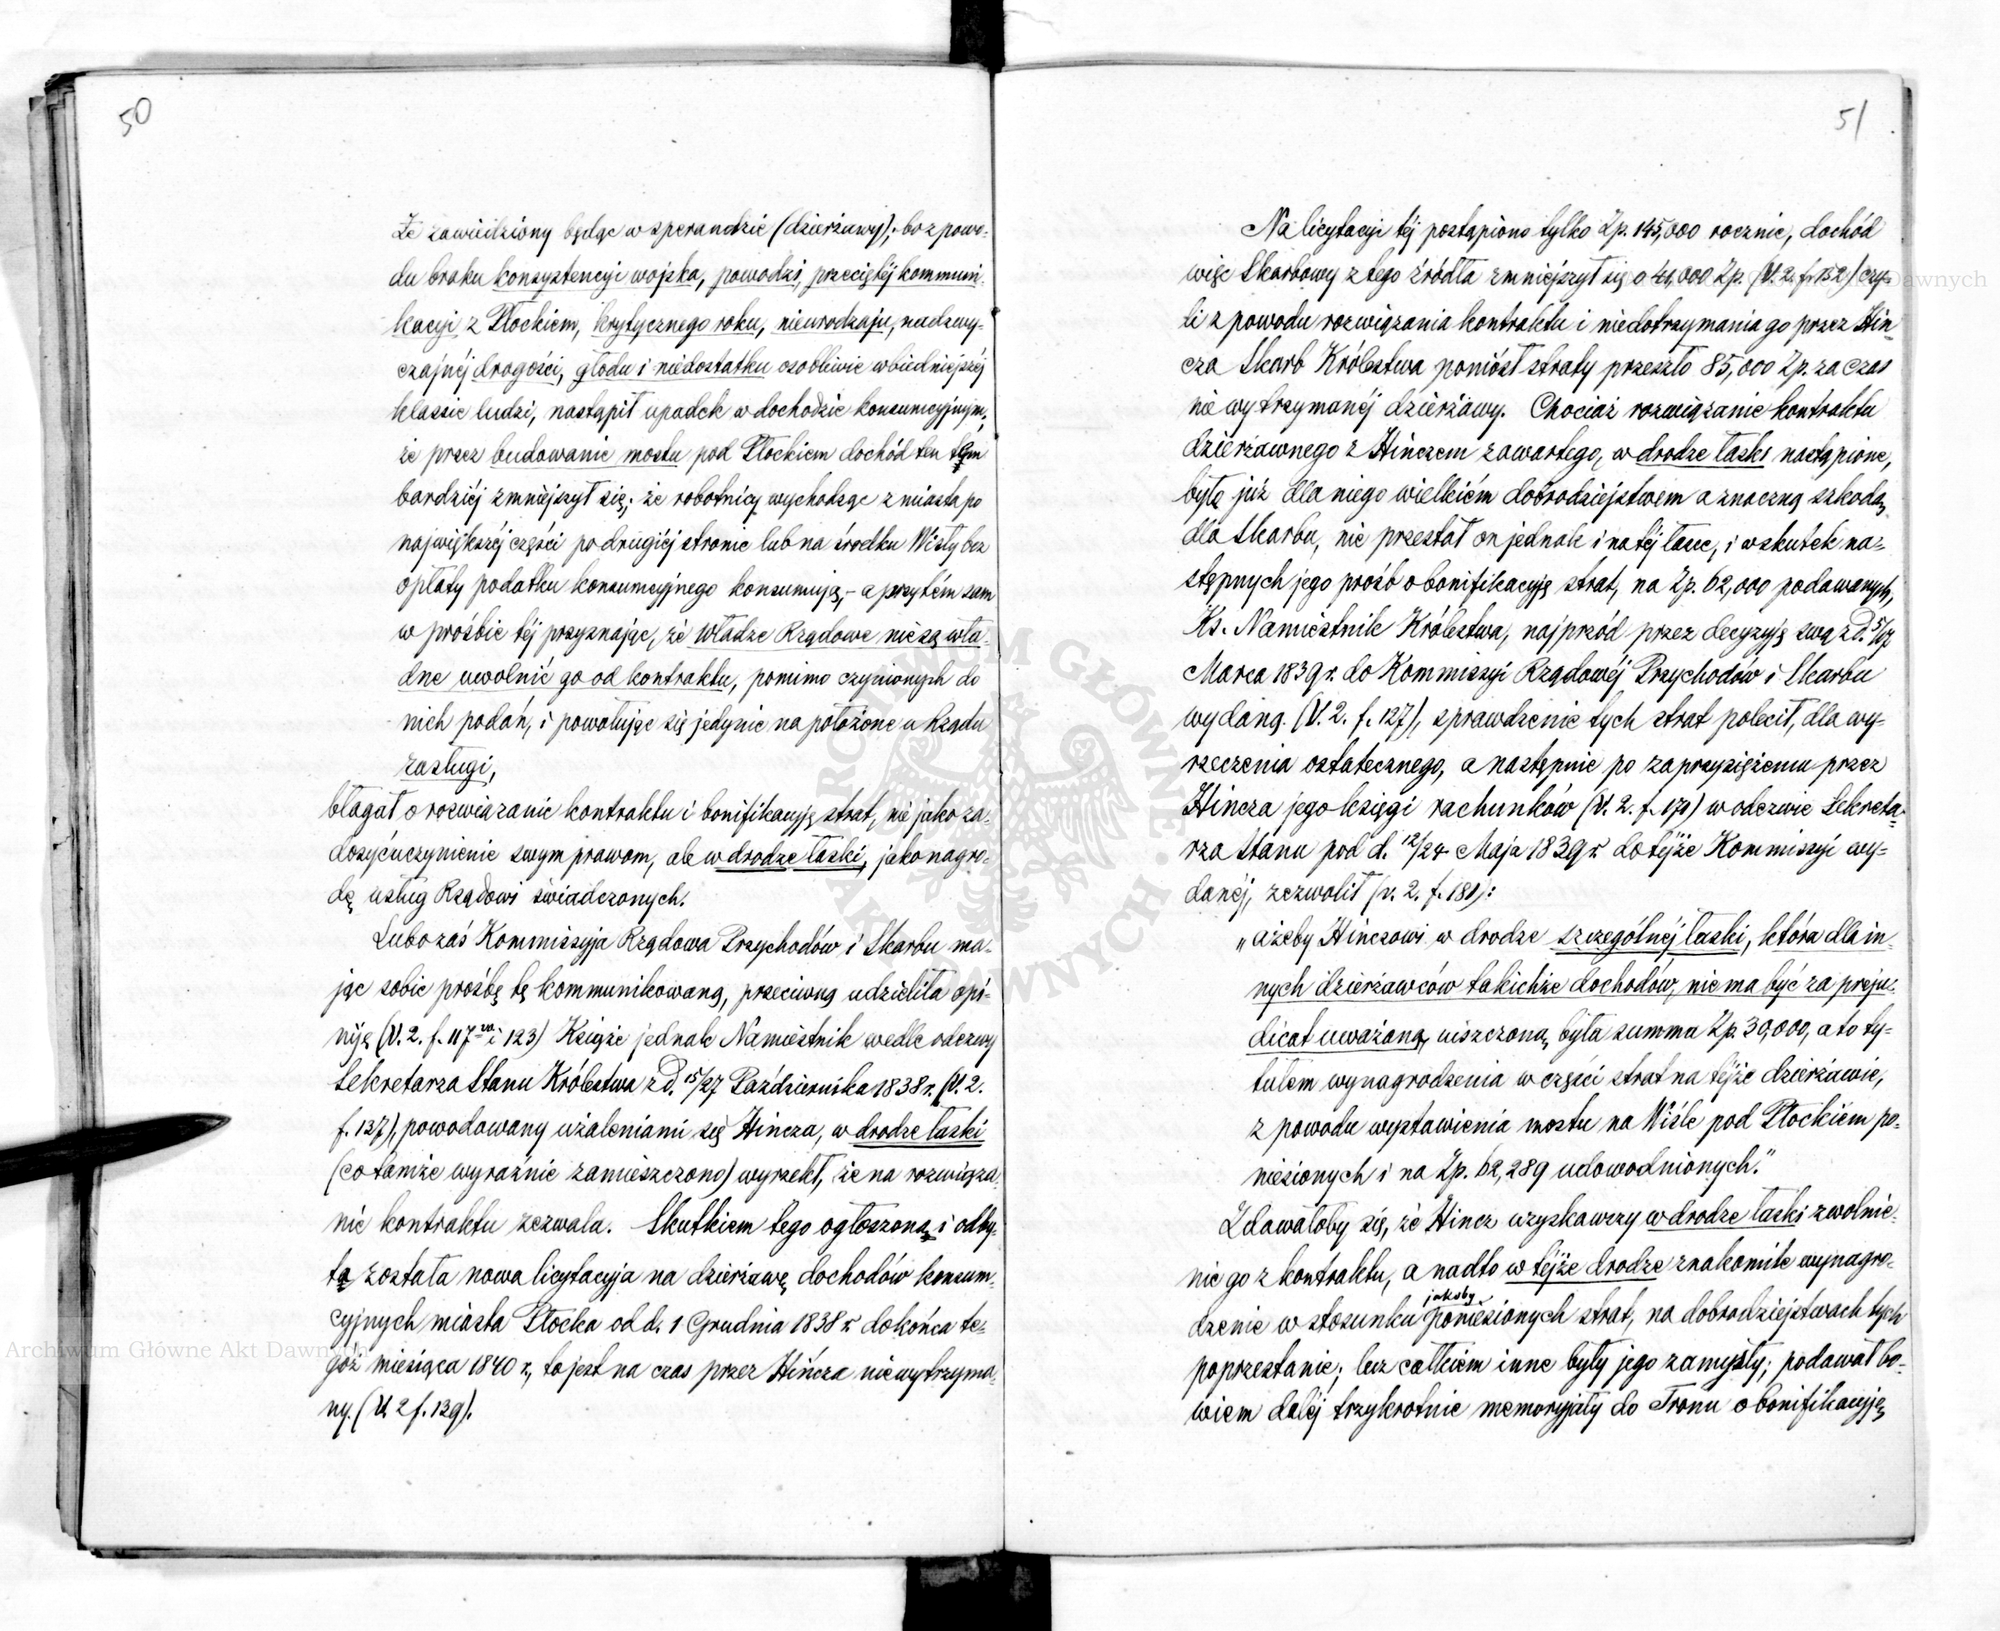 50
Że zawiedziony będąc w sperandzie (dzierżawy); bo z powo-
du braku konsystencyi wojska, powodzi, przeciętéj kommuni-
kacyi z Płockiem, krytycznego roku, nieurodzaju, nadzwy-
czajnéj drogości, głodu i niedostatku osobliwie w biedniejszéj
klassie ludzi, nastąpił upadek w dochodzie konsumcyjnym;
że przez budowanie mostu pod Płockiem dochód ten tém
bardziéj zmniejszył się; że robotnicy wychodząc z miasta po
największéj części po drugiéj stronie lub na środku Wisły bez
opłaty podatku konsumcyjnego konsumują, – a przytém sam
w prośbie téj przyznając, że władze Rządowe nie są wła-
dne uwolnić go od kontraktu, pomimo czynionych do
nich podań, i powołując się jedynie na położone u Rządu
zasługi,
błagał o rozwiązanie kontraktu i bonifikacyję strat, nie jako za-
dosyćuczynienie swym prawom, ale w drodze łaski, jako nagro-
dę usług Rządowi świadczonych.
Lubo zaś Kommissyja Rządowa Przychodów i Skarbu ma-
jąc sobie prośbę tę kommunikowaną, przeciwną udzieliła opi-
niję (V. 2. f. 117 vo i 123) Książe jednak Namiestnik wedle odezwy
Sekretarza Stanu Królestwa z d. 15/27 Października 1838 r. (V. 2.
f. 137), powodowany użaleniami się Hincza, w drodze łaski
(co tamże wyraźnie zamieszczono) wyrzekł, że na rozwiąza-
nie kontraktu zezwala. Skutkiem tego ogłoszoną i odby-
tą została nowa licytacyja na dzierżawę dochodów konsum-
cyjnych miasta Płocka od d. 1 Grudnia 1838 r. do końca te-
goż miesiąca 1840 r., to jest na czas przez Hińcza niewytrzyma-
ny. (V. 2 f. 139).
51
Na licytacyi téj postąpiono tylko Zp. 145,000 rocznie, dochód
więc Skarbowy z tego źródła zmniejszył się o 41,000 Zp. (V. 2. f. 152) czy-
li z powodu rozwiązania kontraktu i niedotrzymania go przez Hin-
cza Skarb Królestwa poniósł straty przeszło 85,000 Zp. za czas
nie wytrzymanéj dzierżawy. Chociaż rozwiązanie kontraktu
dzierżawnego z Hińczem zawartego, w drodze łaski nastąpione,
było już dla niego wielkiém dobrodziejstwem a znaczną szkodą
dla Skarbu, nie przestał on jednak i na téj łasce, i w skutek na-
stępnych jego prośb o bonifikacyję strat, na Zp. 62,000 podawanych,
Ks. Namiestnik Królestwa, najprzód przez decyzyję swą z d. 5/17
Marca 1839 r. do Kommissyi Rządowéj Przychodów i Skarbu
wydaną. (V. 2. f. 127), sprawdzenie tych strat polecił, dla wy-
rzeczenia ostatecznego, a następnie po zaprzysiężeniu przez
Hincza jego księgi rachunków (V. 2. f. 170) w odezwie Sekreta-
rza Stanu pod d. 12/24 Maja 1839 r. do téjże Kommissyi wy-
danéj, zezwolił (v. 2. f. 181):
„ażeby Hinczowi w drodze szczególnéj łaski, która dla in-
nych dzierżawców takichże dochodów, nie ma być za preju-
dicat uważaną, uiszczoną była summa Zp. 30,000, a to ty-
tułem wynagrodzenia w części strat na téjże dzierżawie,
z powodu wystawienia mostu na Wiśle pod Płockiém po-
niesionych i na Zp. 62,289 udowodnionych."
Zdawałoby się, że Hincz uzyskawszy w drodze łaski zwolnie-
nie go z kontraktu, a nadto w téjże drodze znakomite wynagro-
jakoby
dzenie w stosunku poniesionych strat, na dobrodziejstwach tych
poprzestanie; lecz całkiém inne były jego zamysły; podawał bo-
wiem daléj trzykrotnie memoryjały do Tronu o bonifikacyję
Archiwum Główne Akt Dawnych
ARCHIWUM GŁÓWNE AKT DAWNYCH